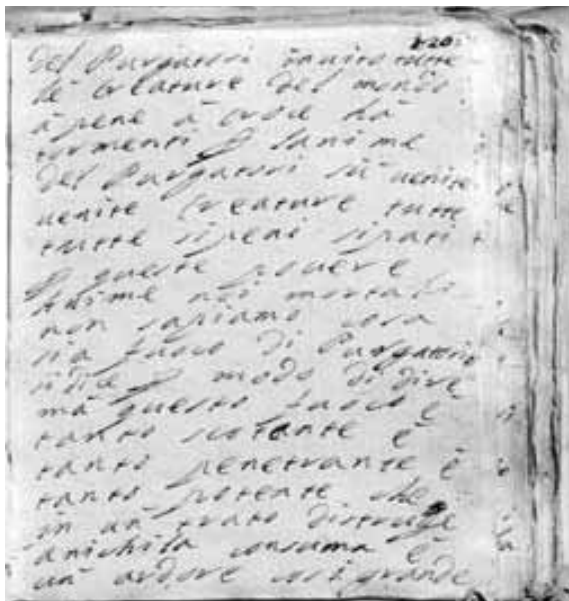 820
del Purgatori invito tutte
le Creature del mondo
à pene à croce hà
tormenti p l'anime
del Purgatori sù venite
venite Creature tutte
tutte si peni si pati
p queste povere
Anime noi mortali
non sapiamo cosa
sia fuoco di Purgattorio
si dice p modo di dire
mà questo fuoco è
tanto scotante è
tanto penetrante è
tanto potente che
in un trato distruge
anichila consuma è
un ardore così grande